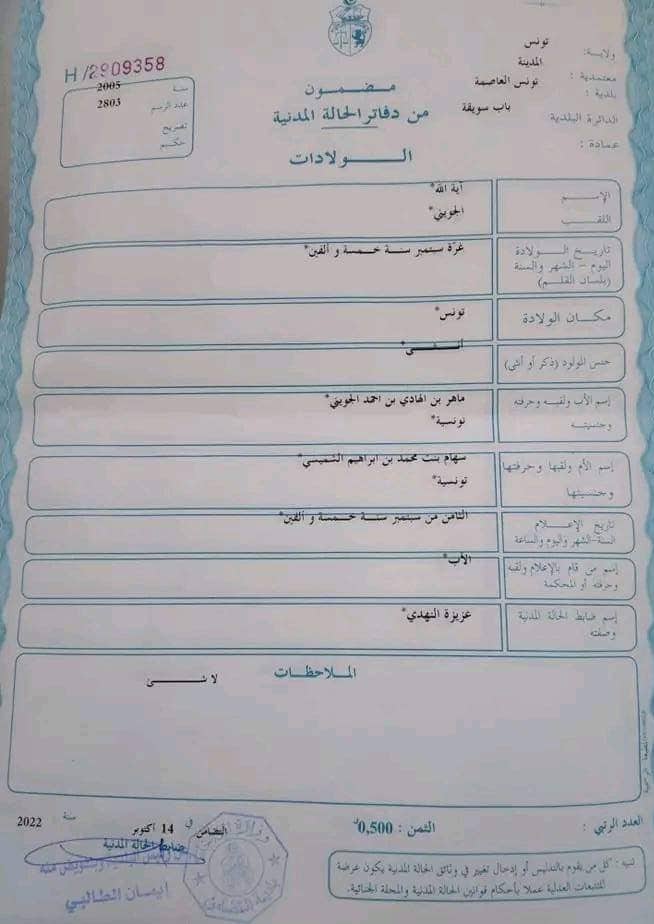 H/2909358
ولاية: تونس
معتمدية : المدينة
بلدية : تونس العاصمة
الدائرة البلدية : باب سويقة
عمادة :
سنة 2005
عدد الرسم 2803
تصريح
حكم
مضمون
من دفاتر الحالة المدنية
الولادات
الإسم آية الله*
اللقب الجويني*
تاريخ الولادة غرّة سبتمبر سنة خمسة و ألفين*
اليوم - الشهر والسنة
(بلسان القلم)
مكان الولادة تونس*
جنس المولود (ذكر أو أنثى) أنثى*
إسم الأب ولقبه وحرفته ماهر بن الهادي بن احمد الجويني*
وجنسيته تونسية*
إسم الأم ولقبها وحرفتها سهام بنت محمد بن ابراهيم الشميسي*
وجنسيتها تونسية*
تاريخ الإعلام الثامن من سبتمبر سنة خمسة و ألفين*
السنة-الشهر واليوم والساعة
إسم من قام بالإعلام ولقبه الأب*
وحرفته أو المحكمة
إسم ضابط الحالة المدنية عزيزة النهدي*
وصفته
الملاحظات
لا شئ
العدد الرتبي :
الثمن : 0,500د
التضامن في 14 أكتوبر سنة 2022
ضابط الحالة المدنية
وبتفويض منه
إيمان الطالبي
تنبيه : كل من يقوم بالتدليس أو إدخال تغيير في وثائق الحالة المدنية يكون عرضة
للتتبعات العدلية عملا بأحكام قوانين الحالة المدنية والمجلة الجنائية.